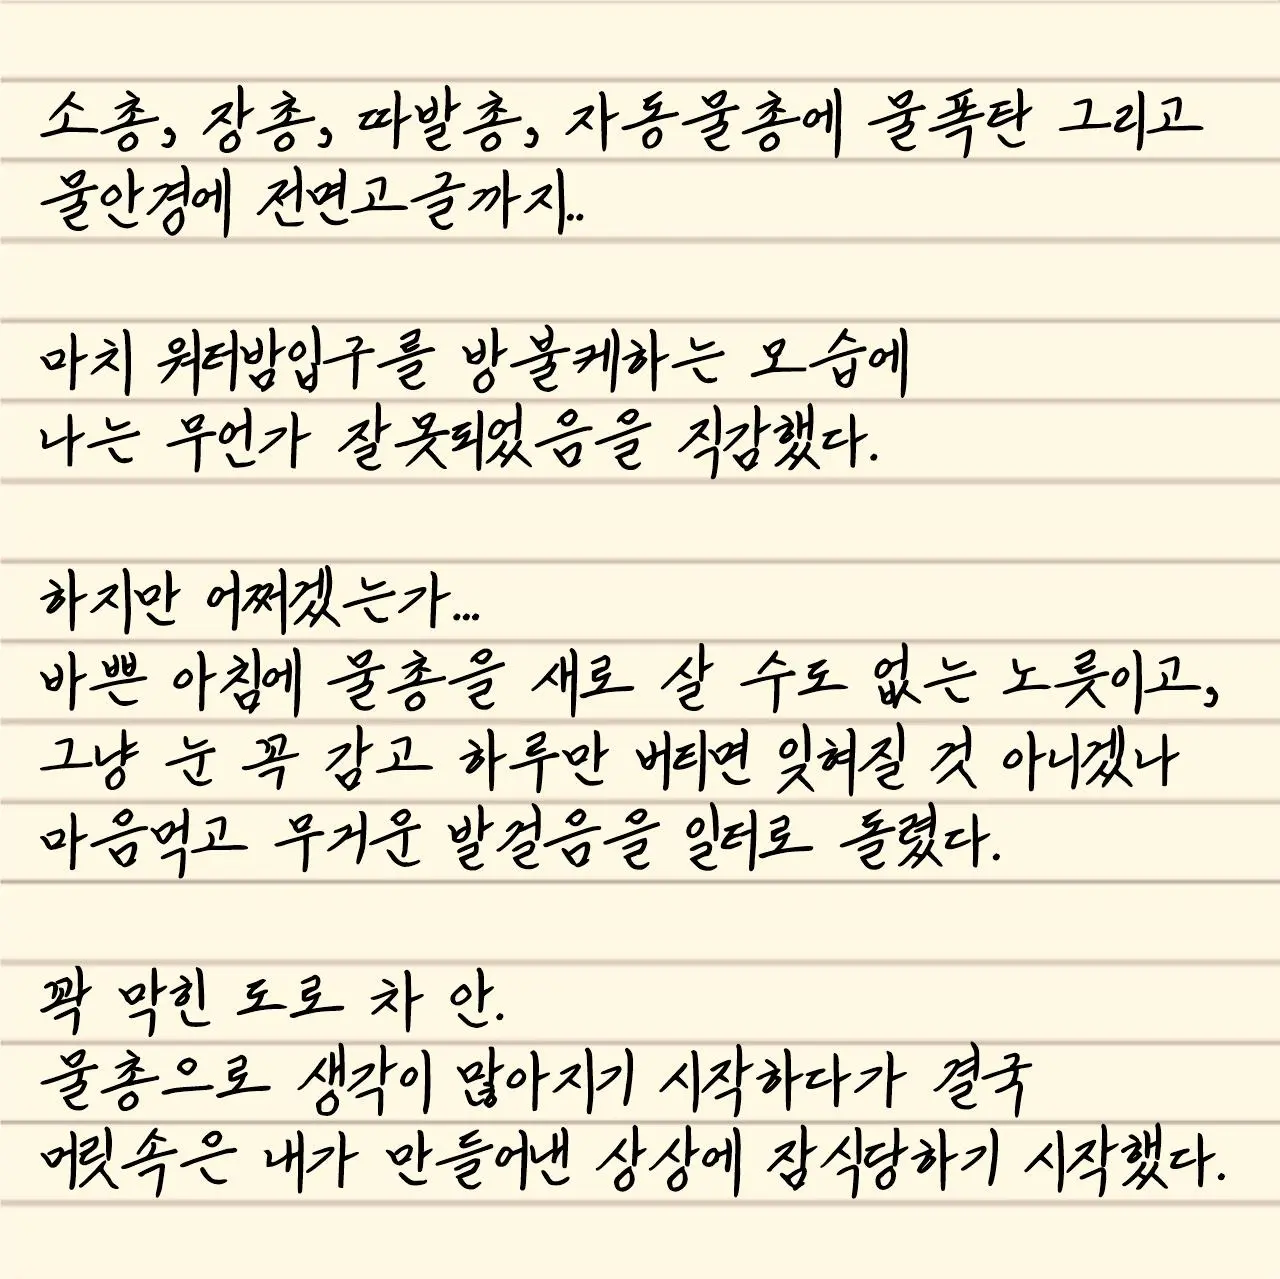 소총, 장총, 따발총, 자동물총에 물폭탄 그리고
물안경에 전면고글까지..
마치 워터밤입구를 방불케하는 모습에
나는 무언가 잘못되었음을 직감했다.
하지만 어쩌겠는가...
바쁜 아침에 물총을 새로 살 수도 없는 노릇이고,
그냥 눈 꼭 감고 하루만 버티면 잊혀질 것 아니겠나
마음먹고 무거운 발걸음을 일터로 돌렸다.
꽉 막힌 도로 차 안.
물총으로 생각이 많아지기 시작하다가 결국
머릿속은 내가 만들어낸 상상에 잠식당하기 시작했다.